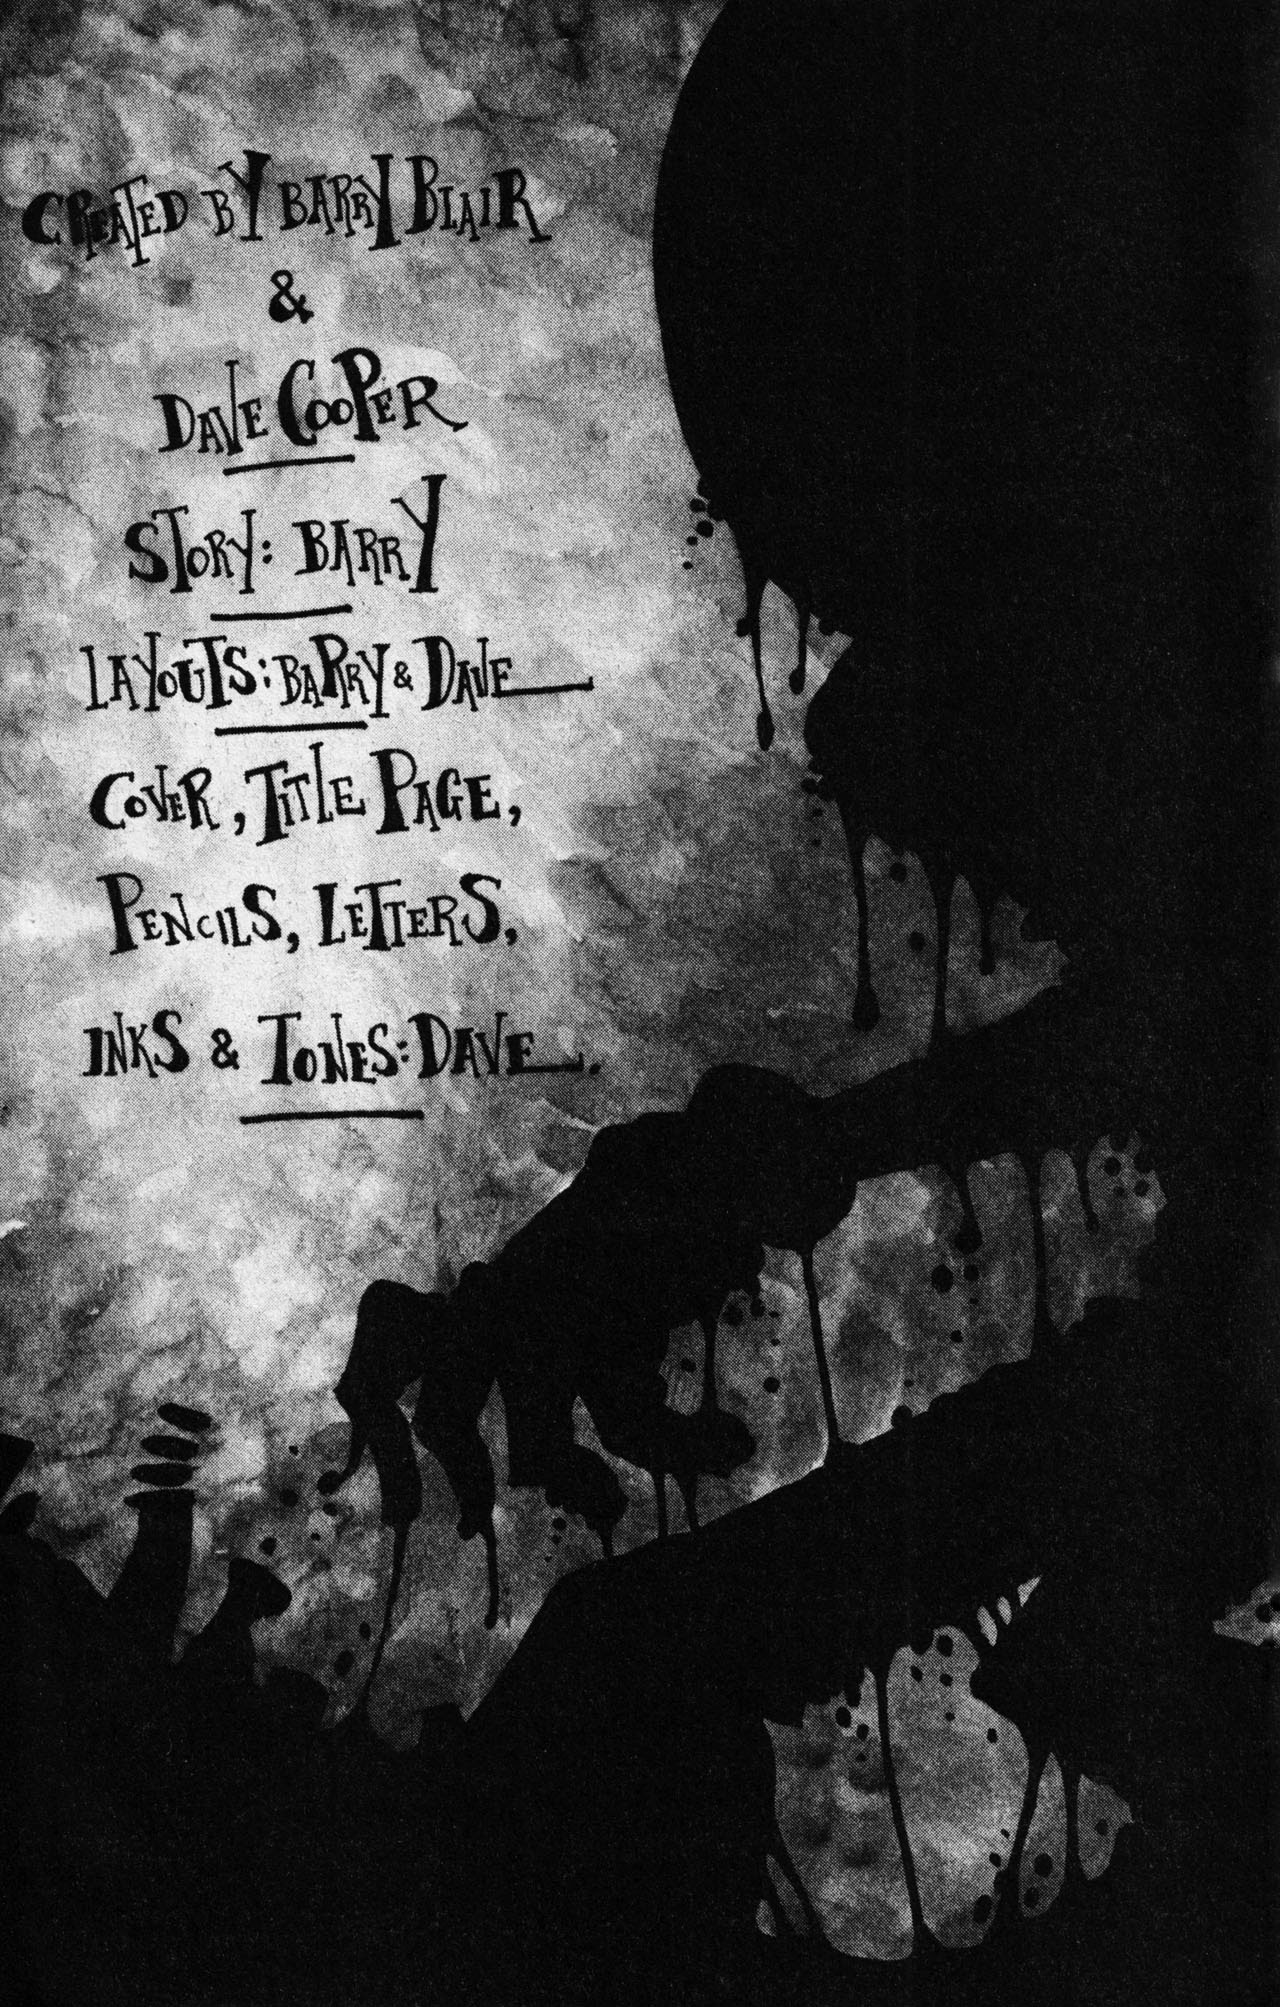 CREATED BY BARRY BLAIR
&
DAVE COOPER
STORY: BARRY
LAYOUTS: BARRY & DAVE
COVER, TITLE PAGE,
PENCILS, LETTERS,
INKS & TONES: DAVE.